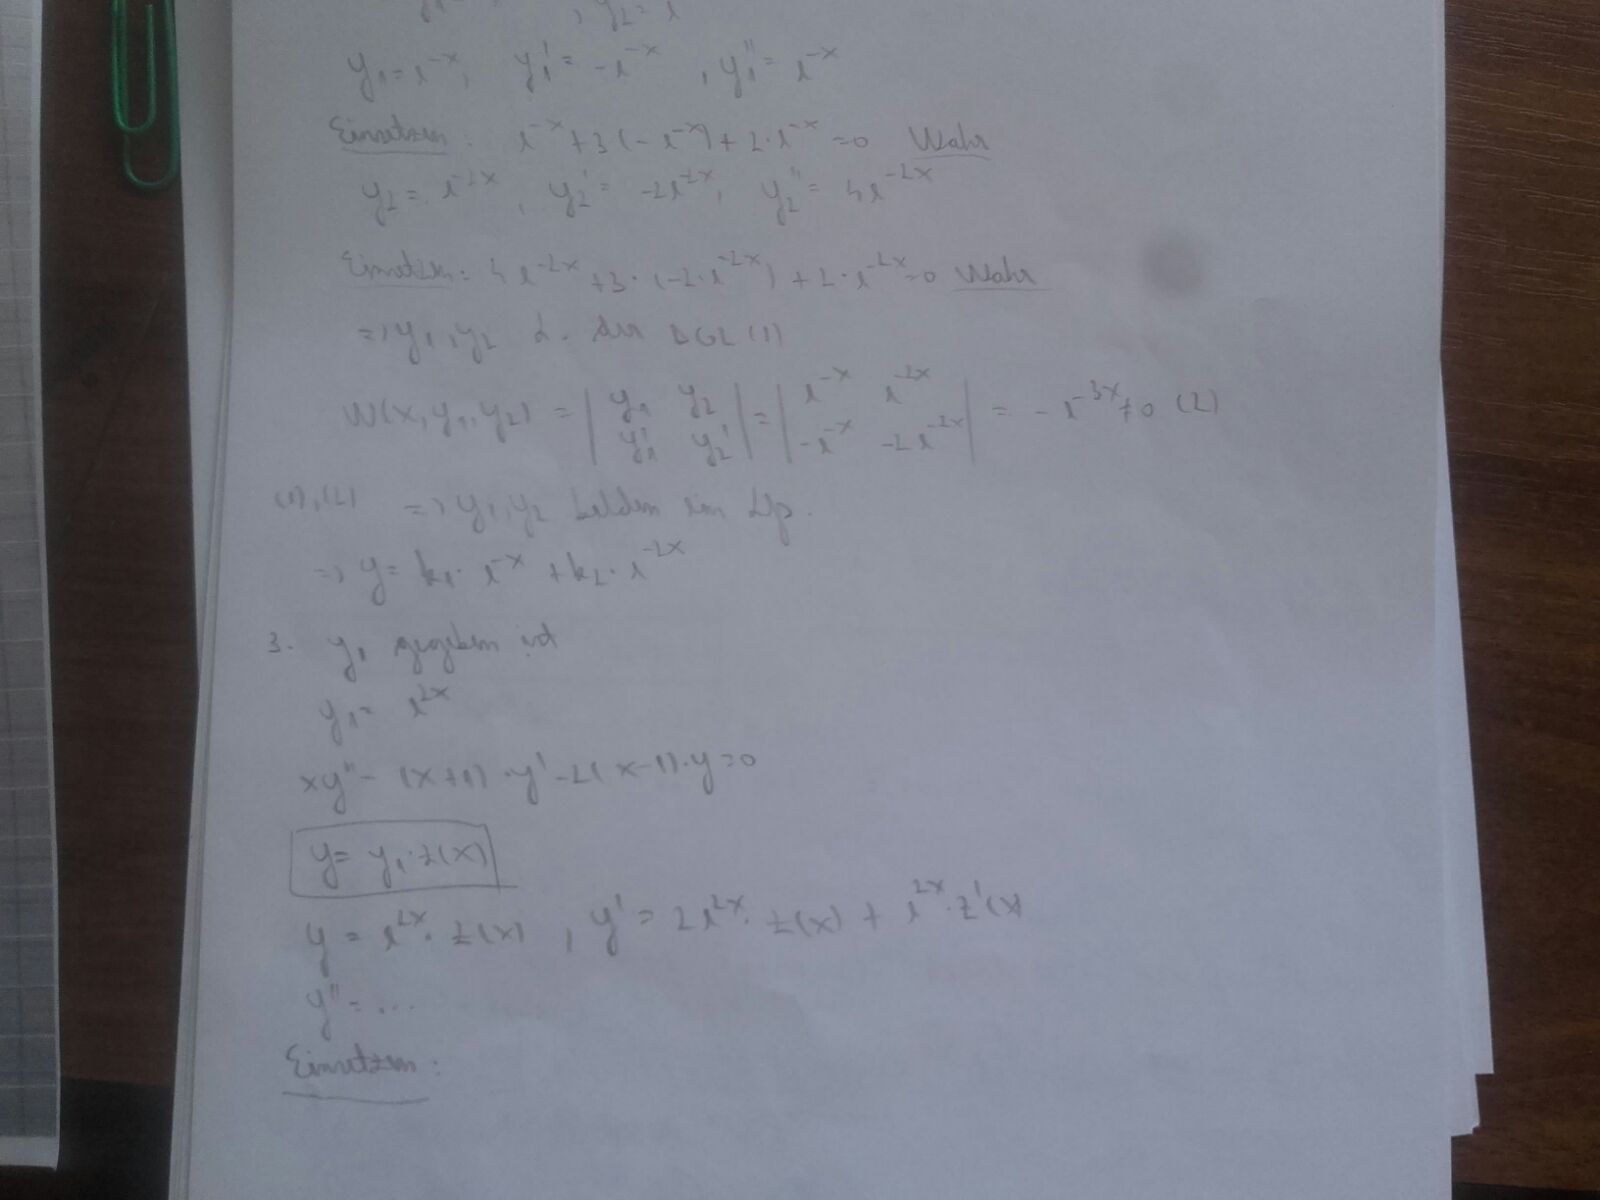 , y₂ = e
y₁ = e^-x, y₁' = -e^-x, y₁'' = e^-x
Einsetzen: e^-x + 3(-e^-x) + 2·e^-x = 0 Wahr
y₂ = e^-2x, y₂' = -2e^-2x, y₂'' = 4e^-2x
Einsetzen: 4e^-2x + 3·(-2·e^-2x) + 2·e^-2x = 0 Wahr
=> y₁, y₂ L. der DGL (1)
W(x, y₁, y₂) = | y₁ y₂ | = | e^-x e^-2x | = -e^-3x ≠ 0 (2)
| y₁' y₂' | | -e^-x -2e^-2x |
(1), (2) => y₁, y₂ bilden ein
=> y = k₁·e^-x + k₂·e^-2x
3. y₁ gegeben ist
y₁ = e^2x
xy'' - (x+1)·y' - 2(x-1)·y = 0
y = y₁·z(x)
y = e^2x·z(x), y' = 2e^2x·z(x) + e^2x·z'(x)
y'' = ...
Einsetzen: